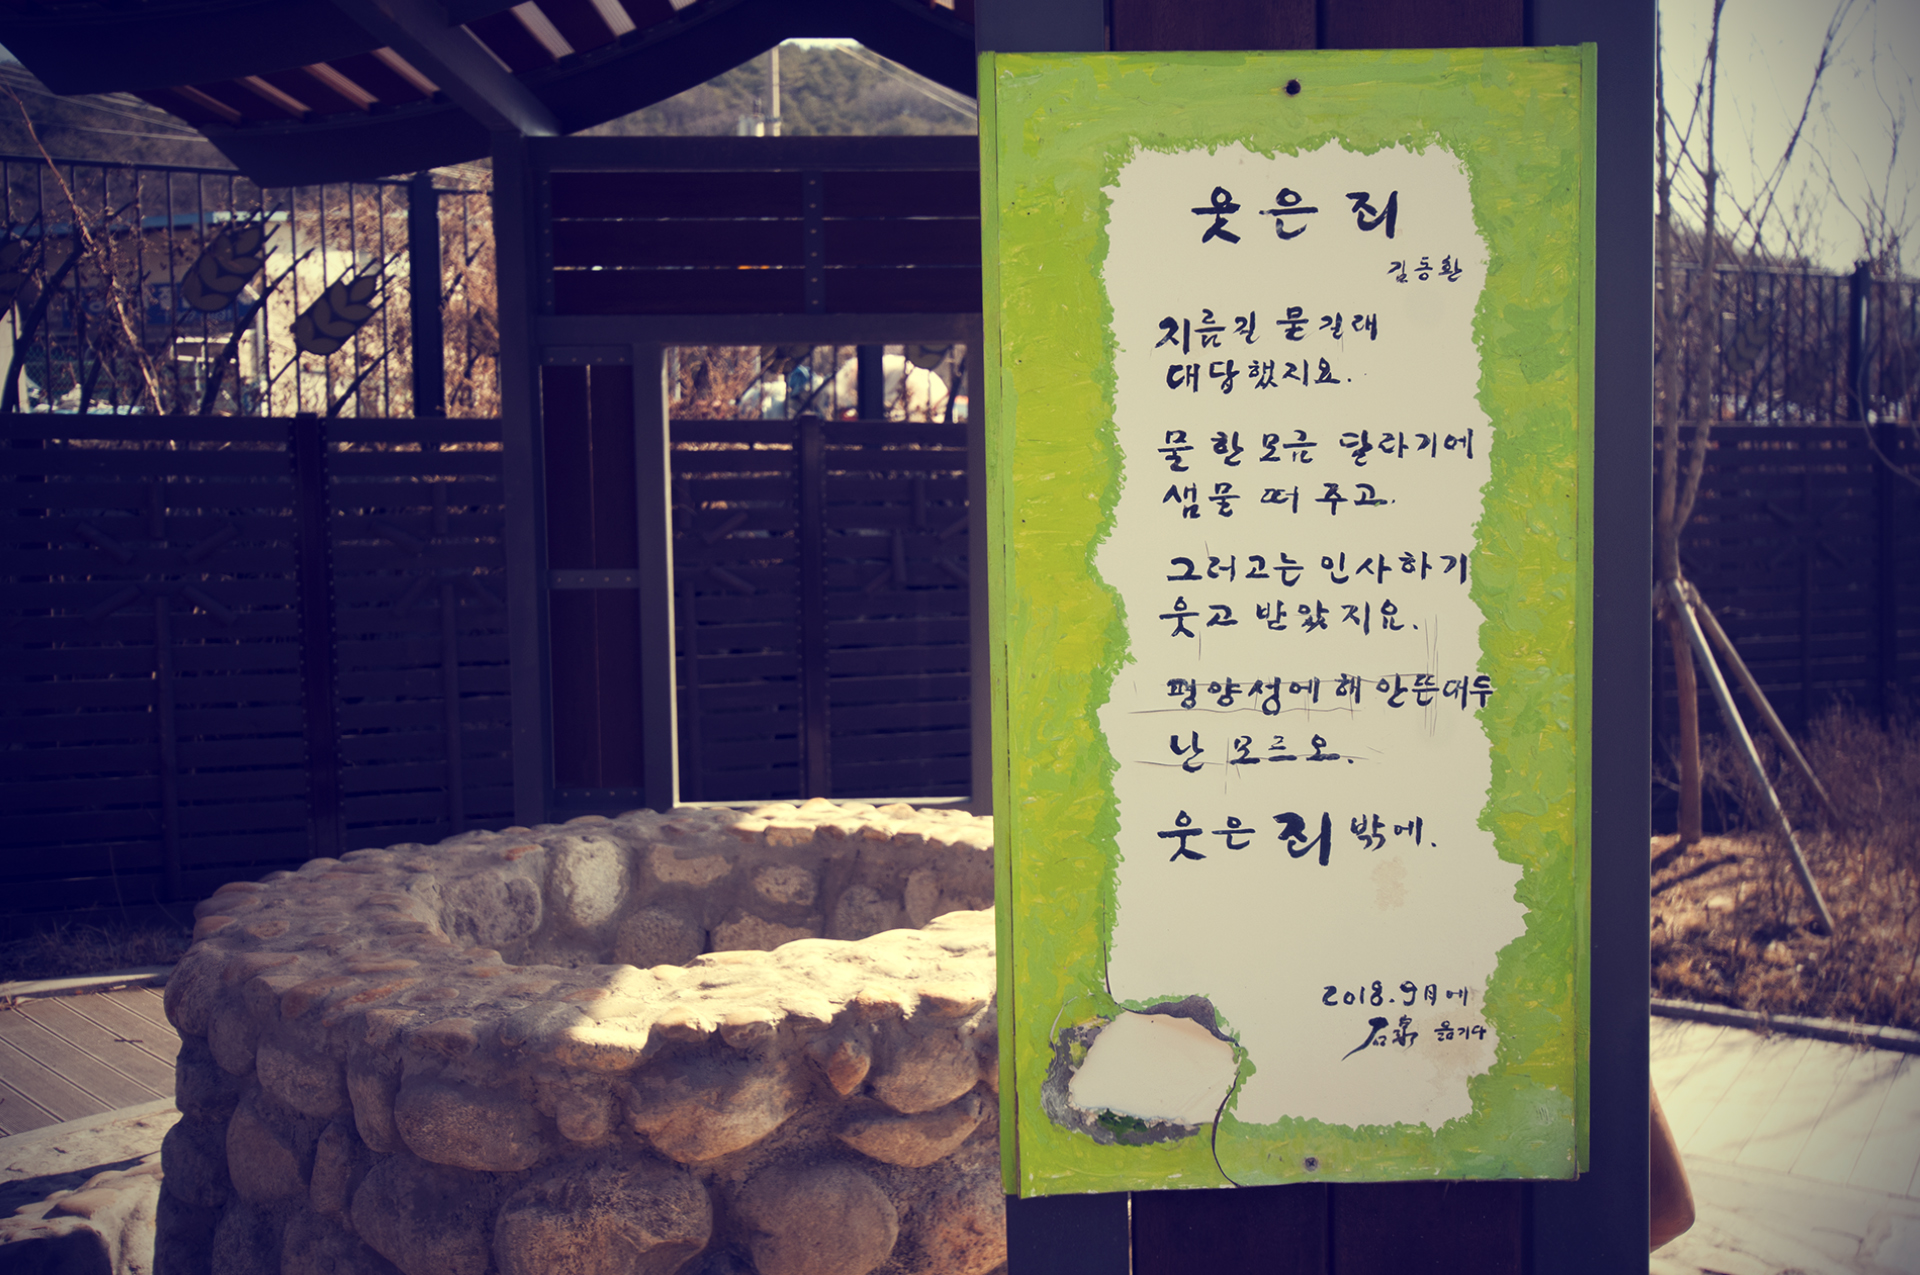 웃은 죄
김동환
지름길 묻길래
대답했지요.
물 한 모금 달라기에
샘물 떠 주고.
그러고는 인사하기
웃고 받았지요.
평양성에 해 안뜬대두
난 모르오.
웃은 죄 밖에.
2018.9月에
옮기다